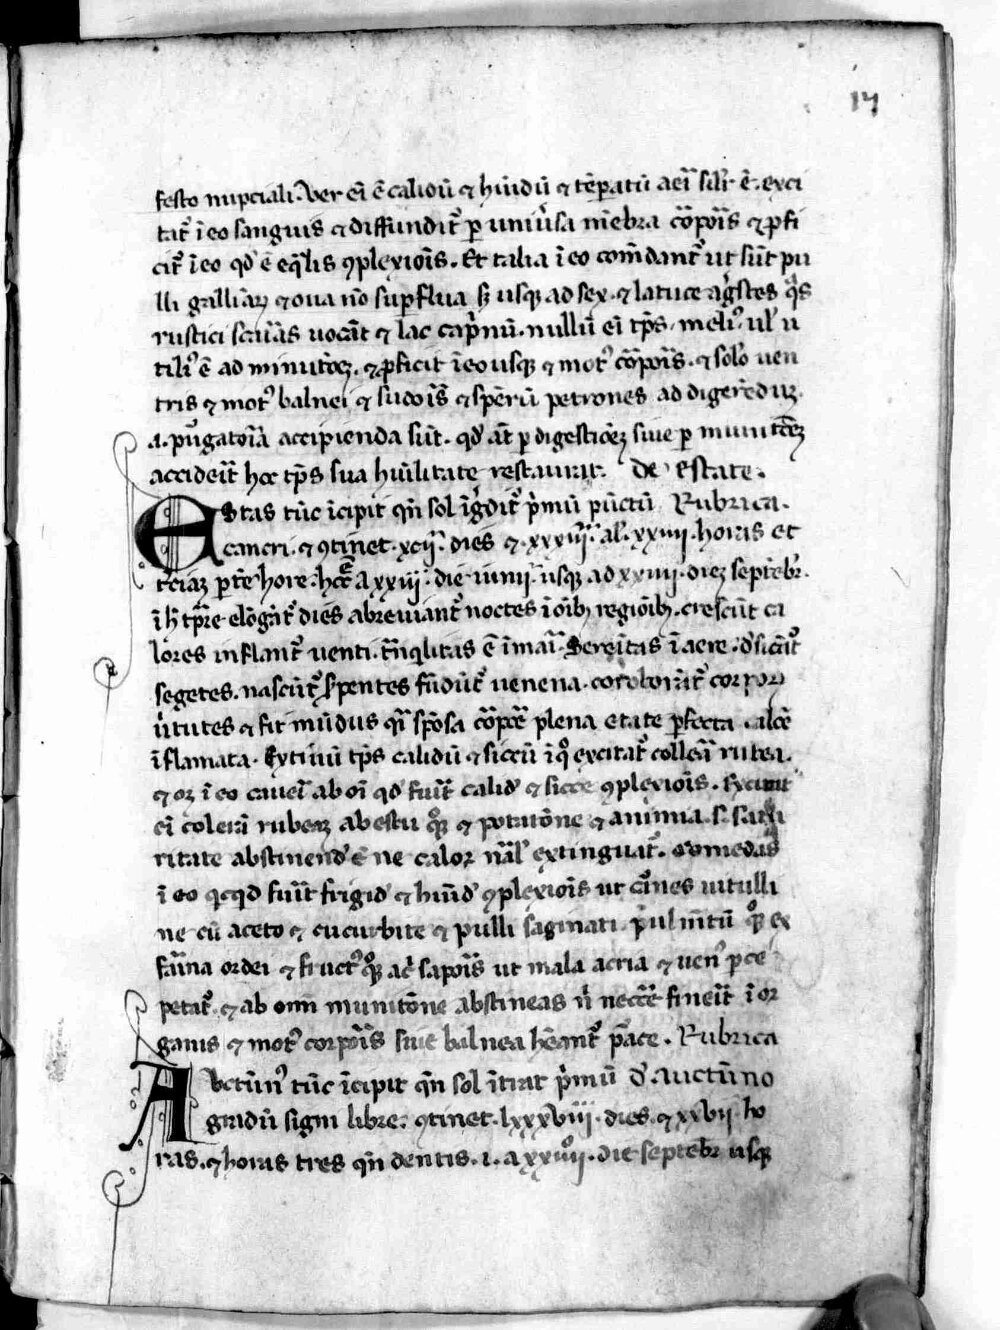 17
festo nupciali. Ver ei ē calidū ⁊ hūidū ⁊ tēperatū aeri sil'r ē. exci
tat' ī eo sanguis ⁊ diffundit' per uniūsa mēbra cōpois ⁊ pfi
cit' ī eo qd' ē eq̄lis ꝯplexiois. Et talia ī eo comēdant' ut sūt pu
lli galliaꝝ ⁊ oua nō superflua sꝫ usqꝫ ad sex. ⁊ latuce agrestes q̄s
rustici uocāt ⁊ lac cap'nū. nullū ei tp̄s meli' ul' u
tili' ē ad minutōeꝫ. ⁊ pficit ī eo usqꝫ ⁊ mot' cōpois. ⁊ solo uen
tris ⁊ mot' balnei ⁊ sudois ⁊ petrones ad digerēduꝫ.
a. purgatoia accipienda sūt. qd' at per digestiōeꝫ siue per minutōeꝫ
accideīt hoc tp̄s sua hūilitate restaurat. De estate.
Estas tūc īcipit qn̄ sol īg'dit' p'mū pūctū Rubrica.
cancri. ⁊ ꝯtinet. xcij. dies ⁊ xxiij al' xxiiij. horas et
t'ciaꝫ pte hore. a xxiij. die iunij. usqꝫ ad xxiiij. dieꝫ septēbr'.
ī h' tp̄re elōgāt' dies abreuiant' noctes ī oībꝫ regioībꝫ. crescūt ca
lores inflant' uenti. tn̄qlitas ē ī mai. Serenitas ī aere. d'sicāt'
segetes. nascūt' s'pentes fūdūt' uenena. coroborāt' corpoꝝ
ū'tutes ⁊ fit mūdus q̄i spōsa plena etate pfecta. calōe
īflamata. Exti uū tp̄s calidū ⁊ siccū ī q° excitat' colera rubea.
⁊ oꝫ ī eo caueri ab oī qd' fuīt calid' ⁊ sicce ꝯplexiois.
ei colera rubeaꝫ ab estu ⁊ potatiōne ⁊ a nimia
ritate abstinend' ē ne calor nāl' extinguat'. Comedas
ī eo qcqd fuīt frigid' ⁊ hūid' ꝯplexiois ut cōnes uitulli
ne cū aceto ⁊ cucurbite ⁊ pulli saginati. pulmētū ex
faīna ordei ⁊ fruct' sapois ut mala acria ⁊ uen' pce
petat'. ⁊ ab omi minutōne abstineas n' neccē fueīt ī or
ganis ⁊ mot' corpois siue balnea hēant' pace. Rubrica
Auctūn' tūc īcipit qn̄ sol ītrat p'mū d' auctūno
gradū signi libre. ꝯtinet. lxxxviij. dies. ⁊ xvij. ho
ras. ⁊ horas tres qn̄ dentis. i. a xxiiij. die septēbr' usqꝫ